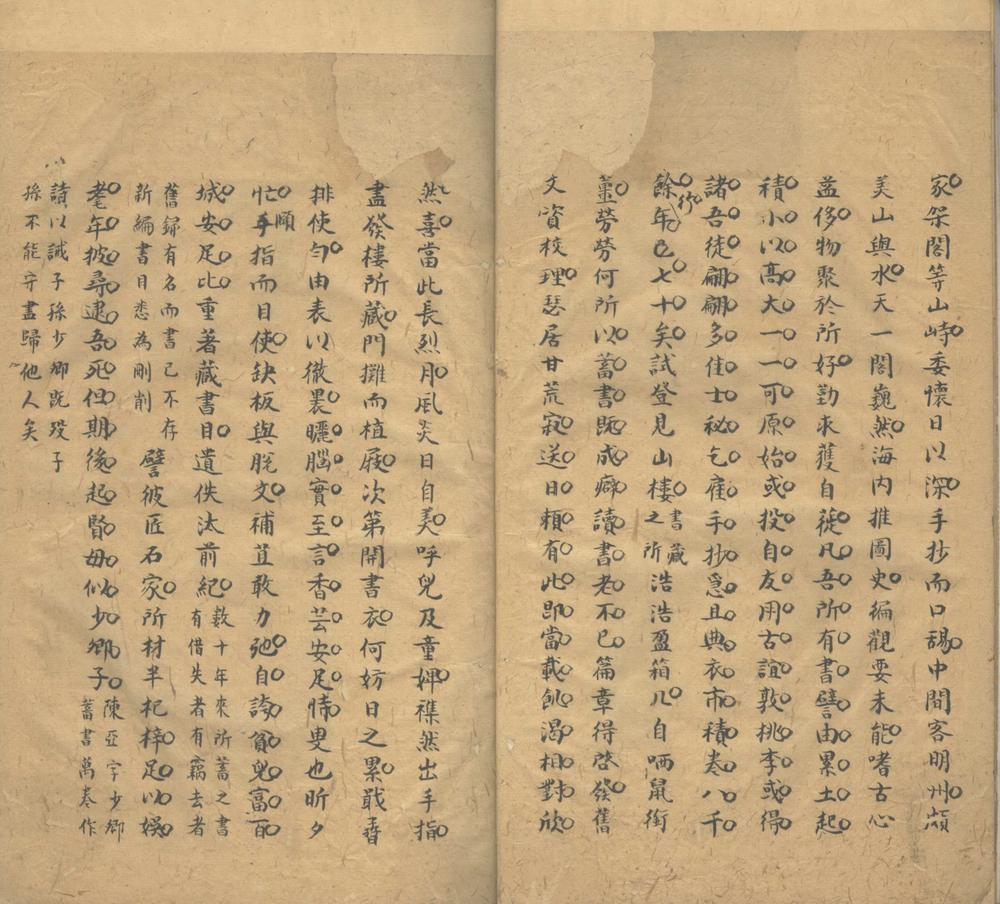 家架閣等山峙委懷日以深手抄而口謁中間客明州頗
美山與水天一閣巍然海內推圖史徧觀要未能嗜古心
益侈物聚於所好勤求獲自蓰凡吾所有書譬由累土起
積小以高大一一可原始或投自友用古誼敦桃李或得
諸吾徒翩翩多佳士秘乞雇手抄急且典衣市積卷八千
餘行年已七十矣試登見山樓藏書之所浩浩盈箱几自哂鼠銜
薑勞勞何所以蓄書既成癖讀書老不已篇章得啓發舊
文資校理瑟居甘荒寂送日賴有此即當載飢渴相對欣
然喜當此長烈月風炎日自美呼兒及童婢襍然出手指
盡發樓所藏門攤而植屐次第開書衣何妨日之累戢孴
排使勻由表以徹裏曬腦實至言香芸安足恃叟也昕夕
忙順手指而目使缺板與脫文補苴敢力弛自誇貧兒富百
城安足比重著藏書目遺佚汰前紀數十年來所蓄之書有借失者有竊去者
舊錄有名而書已不存新編書目悉為刪削譬彼匠石家所材半杞梓足以娛
耄年披尋逮吾死但期後起賢毋似少卿子陳亞字少卿蓄書萬卷作
詩以誡子孫少卿既歿子孫不能守盡歸他人矣